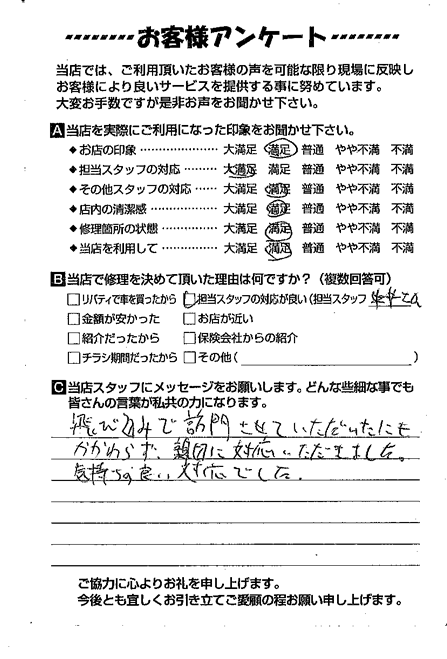 お客様アンケート
当店では、ご利用頂いたお客様の声を可能な限り現場に反映し
お客様により良いサービスを提供する事に努めています。
大変お手数ですが是非お声をお聞かせ下さい。
A 当店を実際にご利用になった印象をお聞かせ下さい。
◆お店の印象 ……………… 大満足 満足 普通 やや不満 不満
◆担当スタッフの対応 ……… 大満足 満足 普通 やや不満 不満
◆その他スタッフの対応 …… 大満足 満足 普通 やや不満 不満
◆店内の清潔感 …………… 大満足 満足 普通 やや不満 不満
◆修理箇所の状態 ………… 大満足 満足 普通 やや不満 不満
◆当店を利用して ………… 大満足 満足 普通 やや不満 不満
B 当店で修理を決めて頂いた理由は何ですか？（複数回答可）
□リバティで車を買ったから □担当スタッフの対応が良い（担当スタッフ
□金額が安かった □お店が近い
□紹介だったから □保険会社からの紹介
□チラシ期間だったから □その他（ ）
C 当店スタッフにメッセージをお願いします。どんな些細な事でも
皆さんの言葉が私共の力になります。
飛び込みで訪問させていただいたにも
かかわらず、親切に対応いただきました。
気持ちの良い対応でした。
ご協力に心よりお礼を申し上げます。
今後とも宜しくお引き立てご愛顧の程お願い申し上げます。